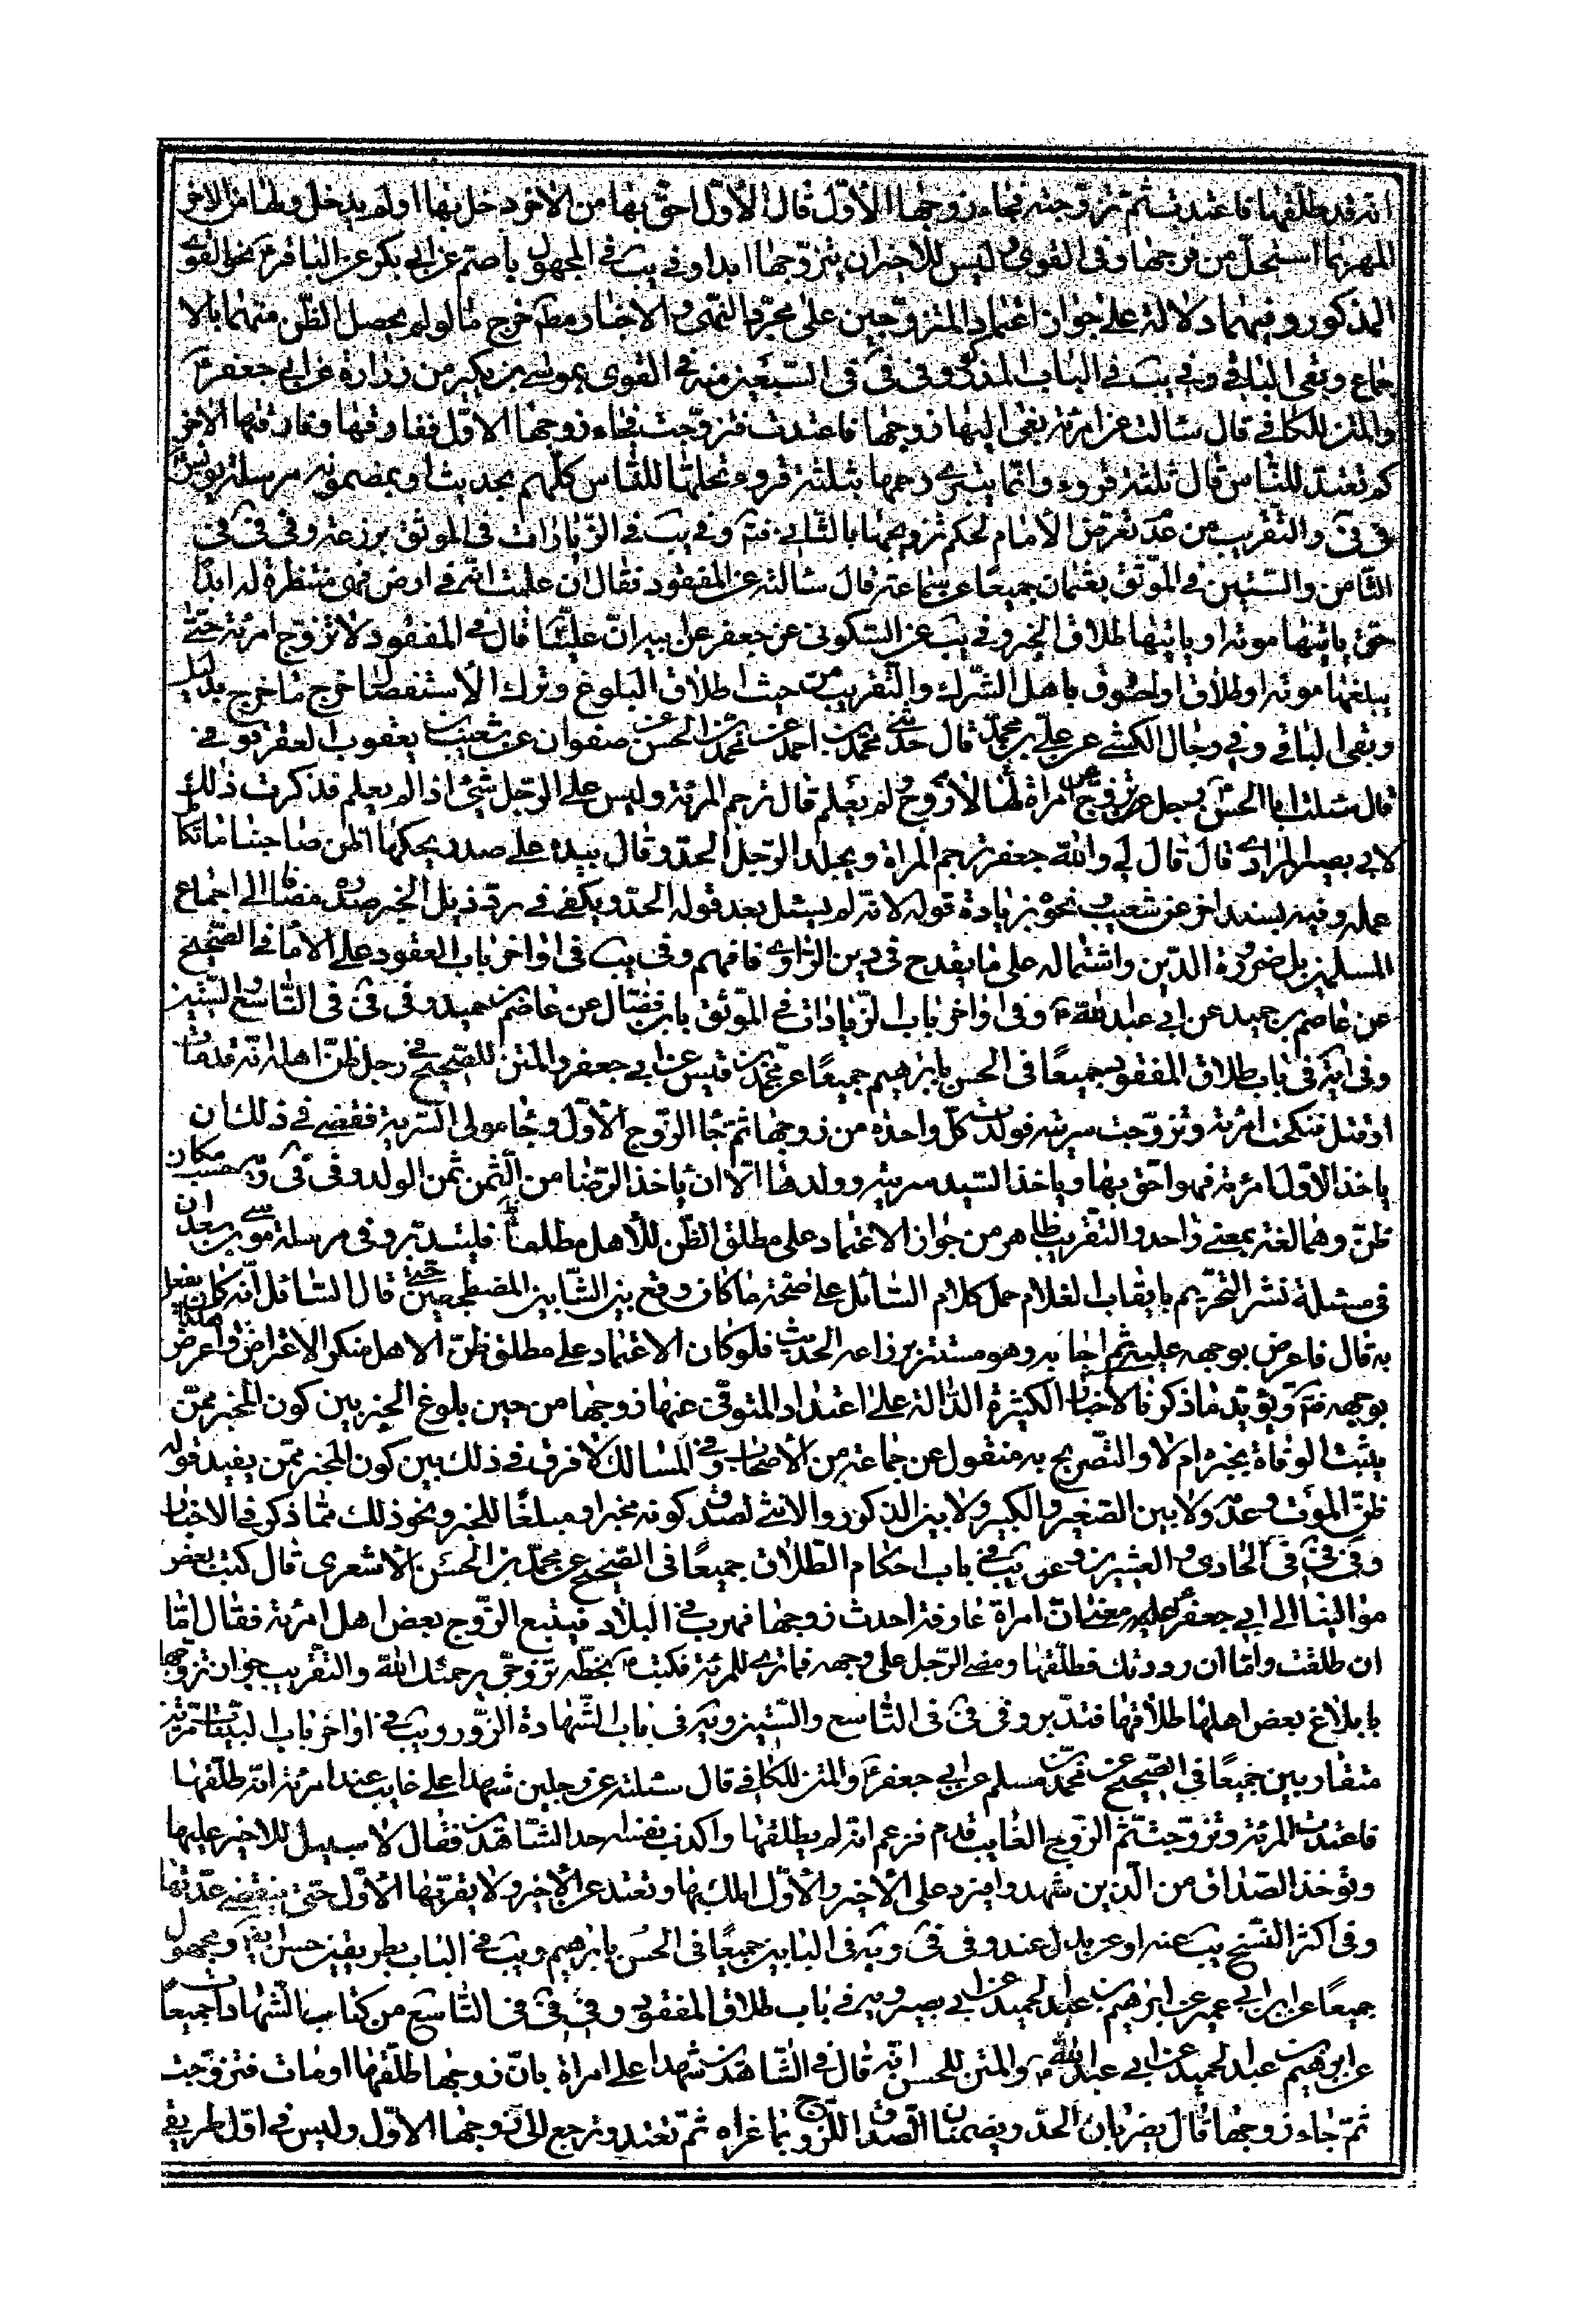 انه قد طلقها فاعتدت ثم تزوجت فجاء زوجها الأول قال الأول احق بها من الاخر دخل بها او لم يدخل ولها من الاخر
المهر بما استحل من فرجها وفى القوى وليس للاخران يتزوجها ابدا وفى يب فى المجهول باصم عن ابى بكر عن الباقر نحو القوى
المذكور وفيهما دلالة على جواز اعتماد المتزوجين على مجرد النهى والاخبار مط خرج ما لو لم يحصل الظن منهما بالا
جماع وبقى الباقى وفى يب فى الباب المذكور وفى فى فى السبعين منه فى القوى بموسى بن بكير من زرارة عن ابى جعفر
والمتن للكافى قال سالت عن امرئة نعى اليها زوجها فاعتدت فتزوجت فجاء زوجها الاول ففارقها وفارقها الاخر
كم تعتد للناس قال ثلثة قروء وانما يستبرء رحمها بثلثة قروء تحلها للناس كلهم بحديث او بمضمونه مرسلة يونس
فى فى والتقريب من عدم تعرض الأمام لحكم تزويجها بالثانى فتم وفى يب فى الزيادات فى الموثق بزرعة وفى فى فى
الثامن والستين فى الموثق بعثمان جميعا عن سماعة قال سالته عن المفقود فقال ان علمت انه فى ارض فهى منتظرة له ابدا
حتى ياتيها موته او ياتيها طلاق الخبر وفى يب عن السكونى عن جعفر عن ابيه ان عليا قال فى المفقود لا تزوج امرئته حتى
يبلغها موته او طلاق او لحوق باهل الشرك والتقريب من حيث اطلاق البلوغ وترك الأستفصال خرج ما خرج بدليل
وبقى الباقى وفى رجال الكشى عن على بن محمد قال حدثنى محمد بن احمد عن محمد بن الحسن عن صفوان عن شعيب بن يعقوب العقرقوفى
قال سئلت ابا الحسن عن رجل تزوج امراة لها زوج ولم يعلم قال ترجم المرئة وليس على الرجل شئ اذا لم يعلم فذكرت ذلك
لابى بصير المرادى قال قال لى والله جعفر ترجم المراة ويجلد الرجل الحد وقال بيده على صدره يحكها اظن صاحبنا ما تكامل
علمه وفيه بسند اخر عن شعيب نحوه بزيادة قوله لانه لم يسئل بعد قوله الحد ويكفى فى رد ذيل الخبر صدره مضافا الى اجماع
المسلمين بل ضرورة الدين واشتماله على ما يقدح فى دين الراوى فافهم وفى يب فى اواخر باب العقود على الاماء فى الصحيح
عن عاصم بن حميد عن ابى عبد الله وفى اواخر باب الزيادات فى الموثق بابن فضال عن عاصم بن حميد وفى فى فى التاسع والستين
وفى فى باب طلاق المفقود جميعا فى الحسن بابرهيم جميعا عن محمد بن قيس عن ابى جعفر والمتن للصحيح فى رجل ظن اهله انه قد مات
او قتل فنكحت امرئته وتزوجت سريته فولدت كل واحدة من زوجها ثم جا الزوج الأول وجا مولى السرية فقضى فى ذلك ان
ياخذ الاول امرئته فهو احق بها وياخذ السيد سريته وولدها الا ان ياخذ الرضا من الثمن ثمن الولد وفى فى حسب مكان
ظن وهما لغة بمعنى واحد والتقريب ظاهر من جواز الاعتماد على مطلق الظن للأهل مطلقا فليتدبر وفى مرسلة موسى بن سعدان
فى مسئلة نشر التحريم بايقاب الغلام حمل كلام السائل على صحة ما كان وقع بين الشابين المضطجعين حتى قال السائل انه كان يفعل
به قال فاعرض بوجهه عليه ثم اجابه وهو مستتر بذراعه الحديث فلو كان الاعتماد على مطلق ظن الاهل منكر الاعراض واعرض
بوجهه فتم ويؤيد ما ذكرنا الأخبار الكثيرة الدالة على اعتداد المتوفى عنها زوجها من حين بلوغ الخبر بين كون المخبر ممن
يثبت الوفاة بخبره ام لا والتصريح به منقول عن جماعة من الأصحاب وفى المسالك لا فرق فى ذلك بين كون المخبر ممن يفيد قوله
ظن الموت وعدمه ولا بين الصغير والكبير ولا بين الذكور والانثى لصدق كونه مخبرا ومبلغا للخبر ونحو ذلك مما ذكر فى الاخبار
وفى فى فى الحادى والعشرين وعن يب فى باب احكام الطلاق جميعا فى الصحيح عن محمد بن الحسن الأشعرى قال كتب بعض
موالينا الى ابى جعفر معى ان امراة عارفة احدث زوجها فهرب فى البلاد فيتبع الزوج بعض اهل امرئته فقال اما
ان طلقت واما ان رددتك فطلقها ومضى الرجل على وجهه فما ترى للمرئة فكتب بخطه تزوجى يرحمك الله والتقريب جواز تزوجها
بابلاغ بعض اهلها طلاقها فتدبر وفى فى فى التاسع والستين ويه فى باب الشهادة الزور ويب فى اواخر باب البينات
متقاربين جميعا فى الصحيح عن محمد بن مسلم عن ابى جعفر والمتن للكافى قال سئلته عن رجلين شهدا على غايب عند امرئته انه طلقها
فاعتدت المرئة وتزوجت ثم الزوج الغايب قدم فزعم انه لم يطلقها واكذب نفسه احد الشاهدين فقال لا سبيل للاخير عليها
وتوخذ الصداق من الذين شهدوا فيرد على الأخير والأول املك بها وتعتد عن الاخير ولا يقربها الأول حتى ينقضى عدتها
وفى اكثر النسخ يب عنه او عن بدل عند وفى فى ويه فى البابين جميعا فى الحسن بابرهيم ويب فى الباب بطريقين حسن ومجهول
جميعا عن ابن ابى عمير عن ابرهيم بن عبد الحميد عن ابى بصير ويه فى باب طلاق المفقود وفى فى فى التاسع من كتاب الشهادات جميعا
عن ابرهيم بن عبد الحميد عن ابى عبد الله والمتن للحسن انه قال فى الشاهدين شهدا على امراة بان زوجها طلقها او مات فتزوجت
ثم جاء زوجها قال يضربان الحد ويضمنان الصداق للزوج بما غراه ثم تعتد وترجع الى زوجها الاول وليس فى اول طريقى